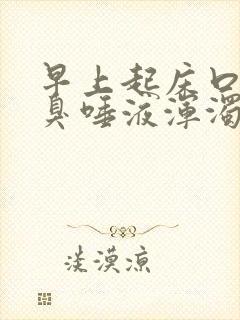 早上起床口
臭唾液浑浊
淡漠凉